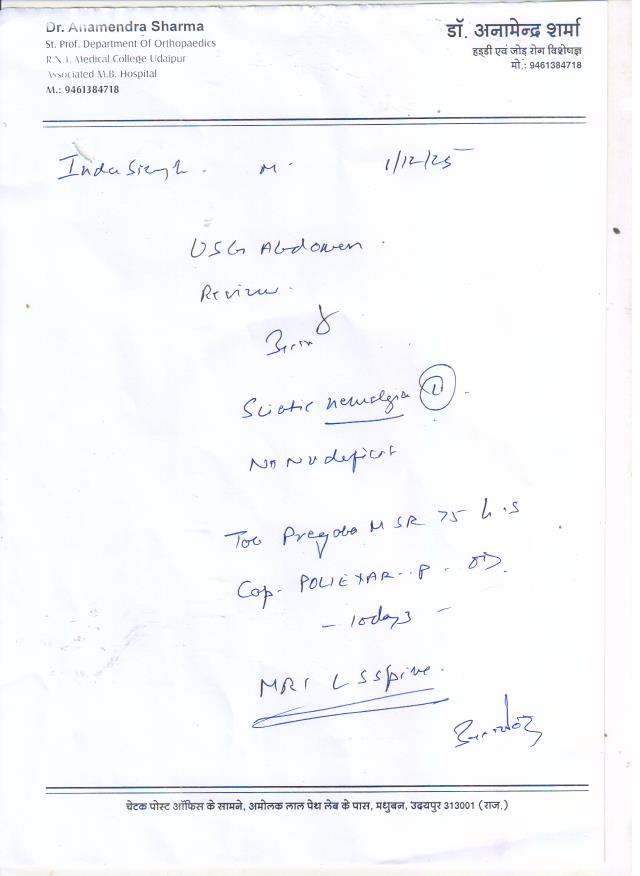 Dr. Anamendra Sharma
St. Prof. Department Of Orthopaedics
R.N.T. Medical College Udaipur
Associated M.B. Hospital
M.: 9461384718
डॉ. अनामेन्द्र शर्मा
हड्डी एवं जोड़ रोग विशेषज्ञ
मो.: 9461384718
Inder Singh . M . 1/12/25
USG Abdomen .
Review .
Sciatic neuralgia (L) .
No NV deficit
Tab Pregaba M SR 75 h.s
Cap. POLIEXAR-P - OD.
- 10days -
MRI L S Spine .
चेटक पोस्ट ऑफिस के सामने, अमोलक लाल पेथ लेब के पास, मधुबन, उदयपुर 313001 (राज.)